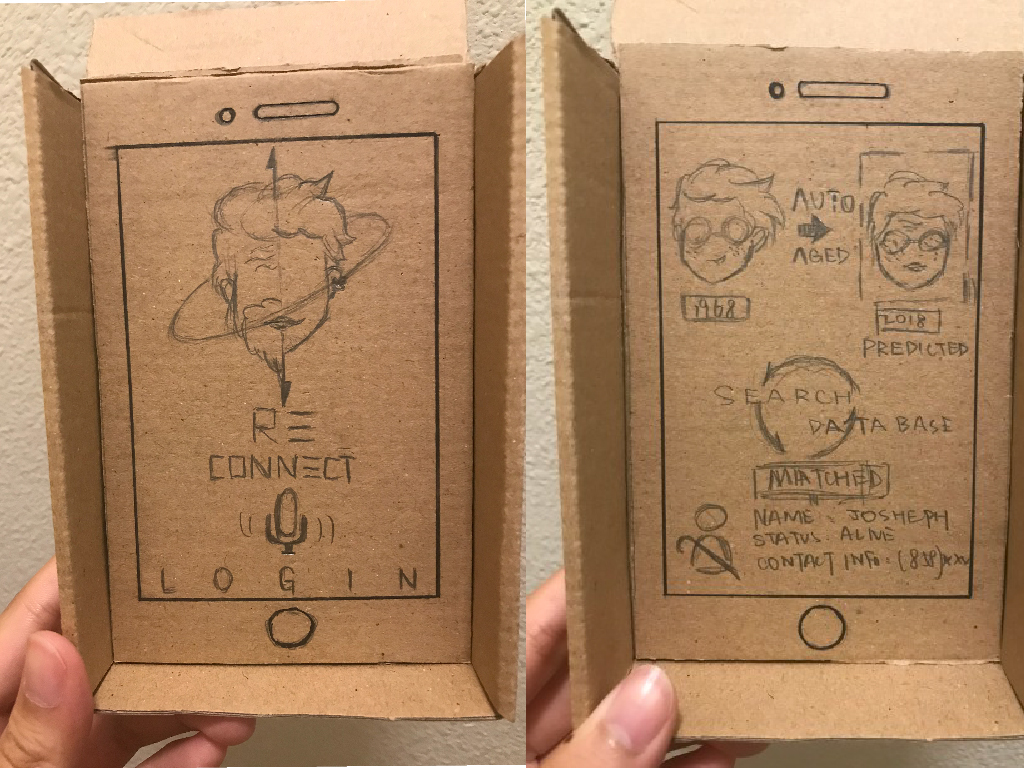 RE
CONNECT
LOGIN
AUTO
AGED
1968
2018
PREDICTED
SEARCH
DATABASE
MATCHED
NAME: JOSHEPH
STATUS: ALIVE
CONTACT INFO: (838)xxx